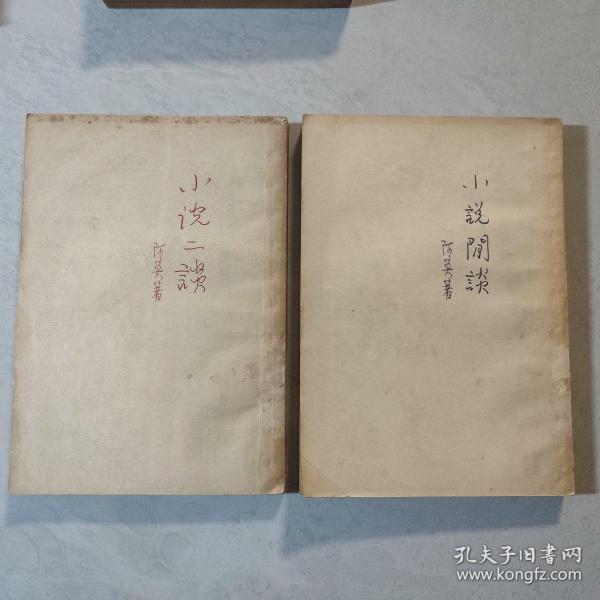 小说二談
阿英著
小說閒談
阿英著
孔夫子旧书网
www.kongfz.com